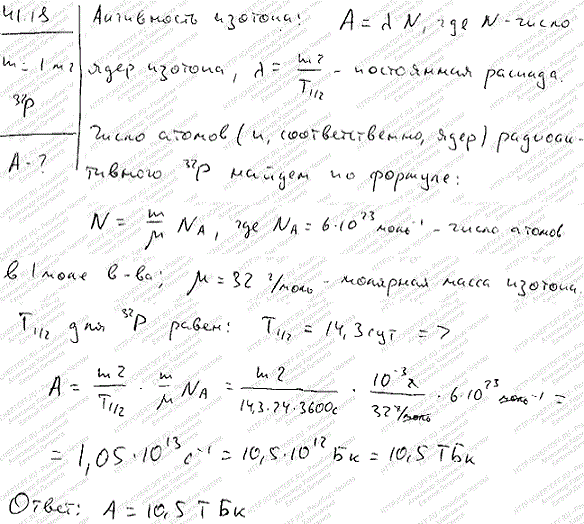 41.18
m = 1 мг
³²P
A - ?
Активность изотопа: A = λ N, где N - число
ядер изотопа, λ = ln 2 / T₁/₂ - постоянная распада.
Число атомов (и, соответственно, ядер) радиоак-
тивного ³²P найдем по формуле:
N = m/μ N_A, где N_A = 6·10²³ моль⁻¹ - число атомов
в 1 моле в-ва; μ = 32 г/моль - молярная масса изотопа.
T₁/₂ для ³²P равен: T₁/₂ = 14,3 сут =>
A = ln 2 / T₁/₂ · m/μ N_A = ln 2 / 14,3·24·3600 с · 10⁻³ г / 32 г/моль · 6·10²³ моль⁻¹ =
= 1,05·10¹³ с⁻¹ = 10,5·10¹² Бк = 10,5 ТБк
Ответ: A = 10,5 ТБк